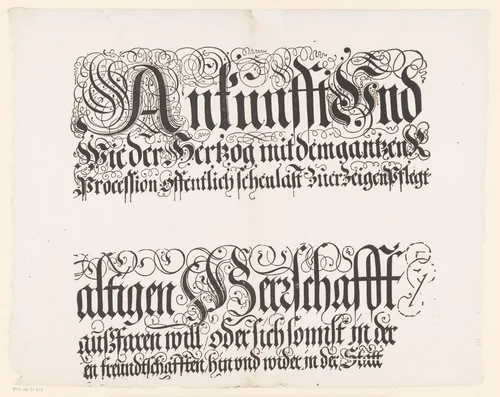 Ankunfft Und
Wie der Hertzog mit dem gantzen
Procession offentlich sehen last Zuerzeigen Pflegt
altigen Herrschafft
außfaren will / oder sich sonnst in der
en freundtschafften hin vnd wider in der Statt